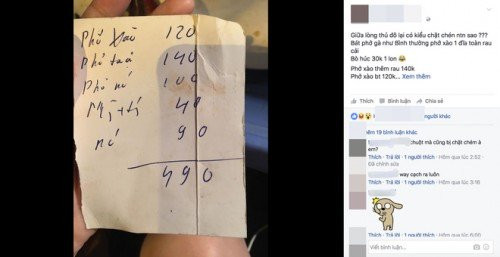 Phở Xào 120
Phở tái 140
Phở nó 100
Mỳ + tí 40
nó 90
490
Giữa lòng thủ đô lại có kiểu chặt chén ntn sao ???
Bát phở gà như Bình thường phở xào 1 đĩa toàn rau cải
Bò húc 30k 1 lon
Phở xào thêm rau 140k
Phở xào bt 120k... Xem thêm
Thích Bình luận Chia sẻ
người khác
Xem 19 bình luận khác
chuột mà cũng bị chặt chém à em?
Thích · Trả lời · 1 người thích · Hôm qua lúc 2:52
Đã chỉnh sửa
way cạch ra luôn
Thích · Trả lời · 1 người thích · Hôm qua lúc 3:16
Thích · Trả lời · 1 người thích · Hôm qua lúc 6:66
Viết bình luận...